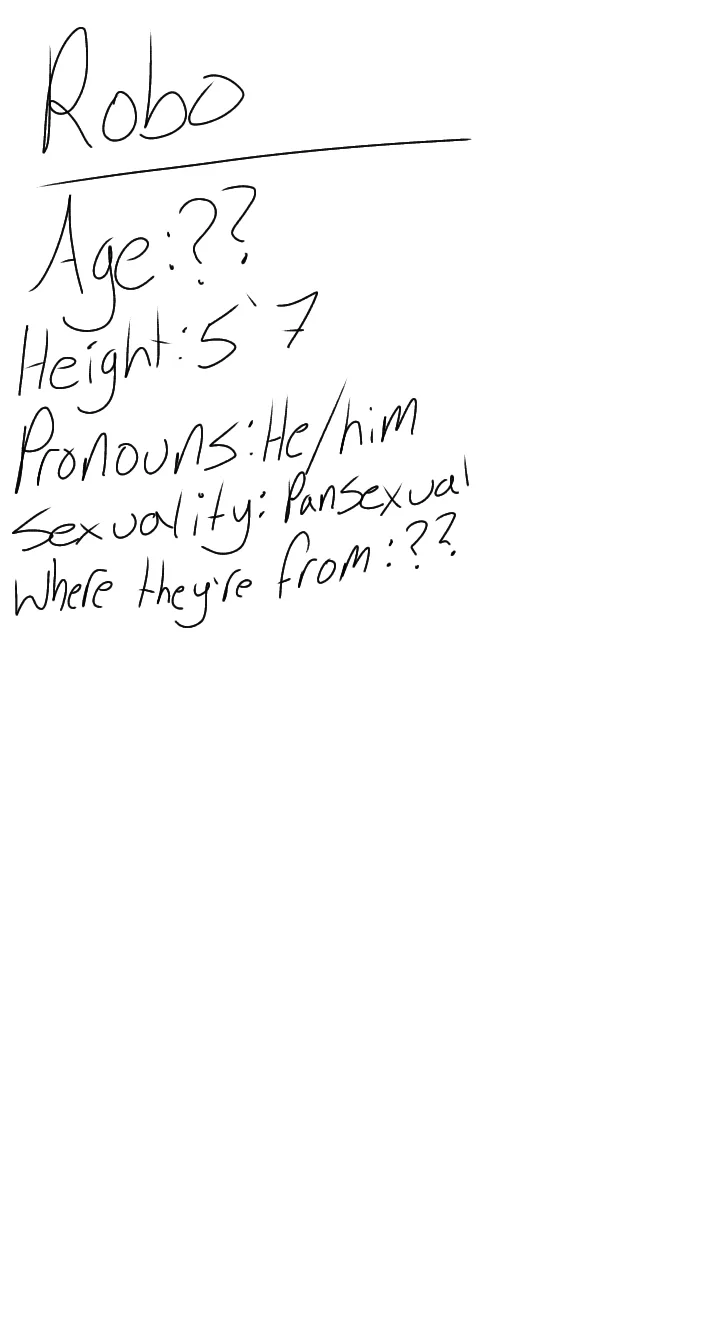 Robo
Age:??
Height:5`7
Pronouns:He/him
Sexuality: Pansexual
Where they're from:??